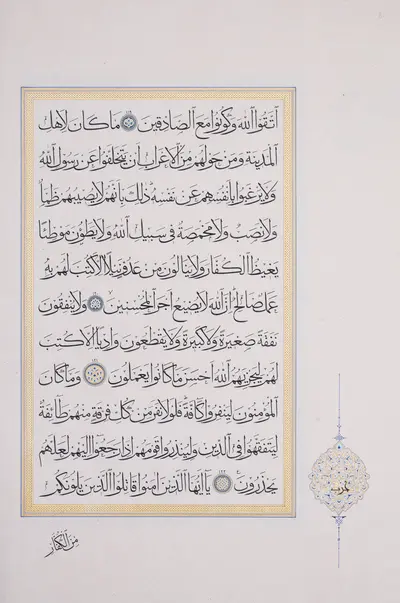 اتقوا الله وكونوا مع الصادقين ما كان لاهل
المدينة ومن حولهم من الاعراب ان يتخلفوا عن رسول الله
ولا يرغبوا بانفسهم عن نفسه ذلك بانهم لا يصيبهم ظمأ
ولا نصب ولا مخمصة في سبيل الله ولا يطؤن موطئا
يغيظ الكفار ولا ينالون من عدو نيلا الا كتب لهم به
عمل صالح ان الله لا يضيع اجر المحسنين ولا ينفقون
نفقة صغيرة ولا كبيرة ولا يقطعون واديا الا كتب
لهم ليجزيهم الله احسن ما كانوا يعملون ١٢١ وما كان
المؤمنون لينفروا كافة فلولا نفر من كل فرقة منهم طائفة
ليتفقهوا في الدين ولينذروا قومهم اذا رجعوا اليهم لعلهم
يحذرون ١٢٢ يا ايها الذين امنوا قاتلوا الذين يلونكم
من الكفار